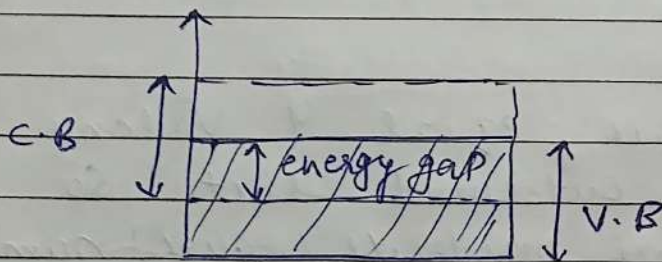 C.B
energy gap
V.B